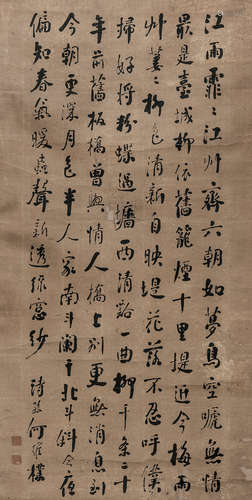 江雨霏〻江艸齊六朝如夢鳥空嗁無情
最是臺城柳依舊籠煙十里堤近今梅雨
艸萋〻柳色清新自映堤花落不忍呼僕
掃好將粉蝶過墻西清谿一曲柳千條二十
年前舊板橋曾與情人橋上別更無消息到
今朝更深月色半人家南斗闌干北斗斜今夜
偏知春氣暖蟲聲新透綠窗紗 詩孫何維樸